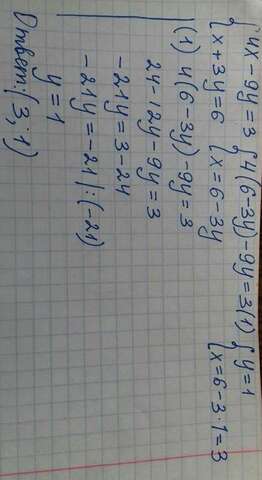 {4x - 9y = 3 {4(6 - 3y) - 9y = 3 (1) {y = 1
{x + 3y = 6 {x = 6 - 3y {x = 6 - 3 · 1 = 3
(1) 4(6 - 3y) - 9y = 3
24 - 12y - 9y = 3
-21y = 3 - 24
-21y = -21 | : (-21)
y = 1
Ответ: (3; 1)